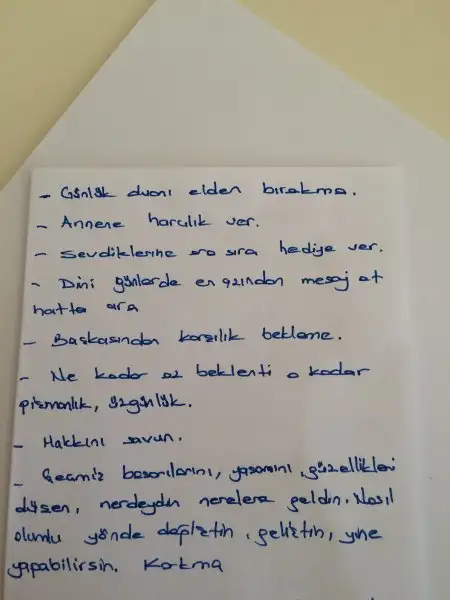 - Günlük duanı elden bırakma.
- Annene harçlık ver.
- Sevdiklerine ara sıra hediye ver.
- Dini günlerde en azından mesaj at
hatta ara
- Başkasından karşılık bekleme.
- Ne kadar az beklenti o kadar
pişmanlık, üzgünlük.
- Hakkını savun.
- Geçmiş başarılarını, yaşamını, güzellikleri
düşün, nerdeydin nerelere geldin. Nasıl
olumlu yönde değiştin, geliştin, yine
yapabilirsin. Korkma